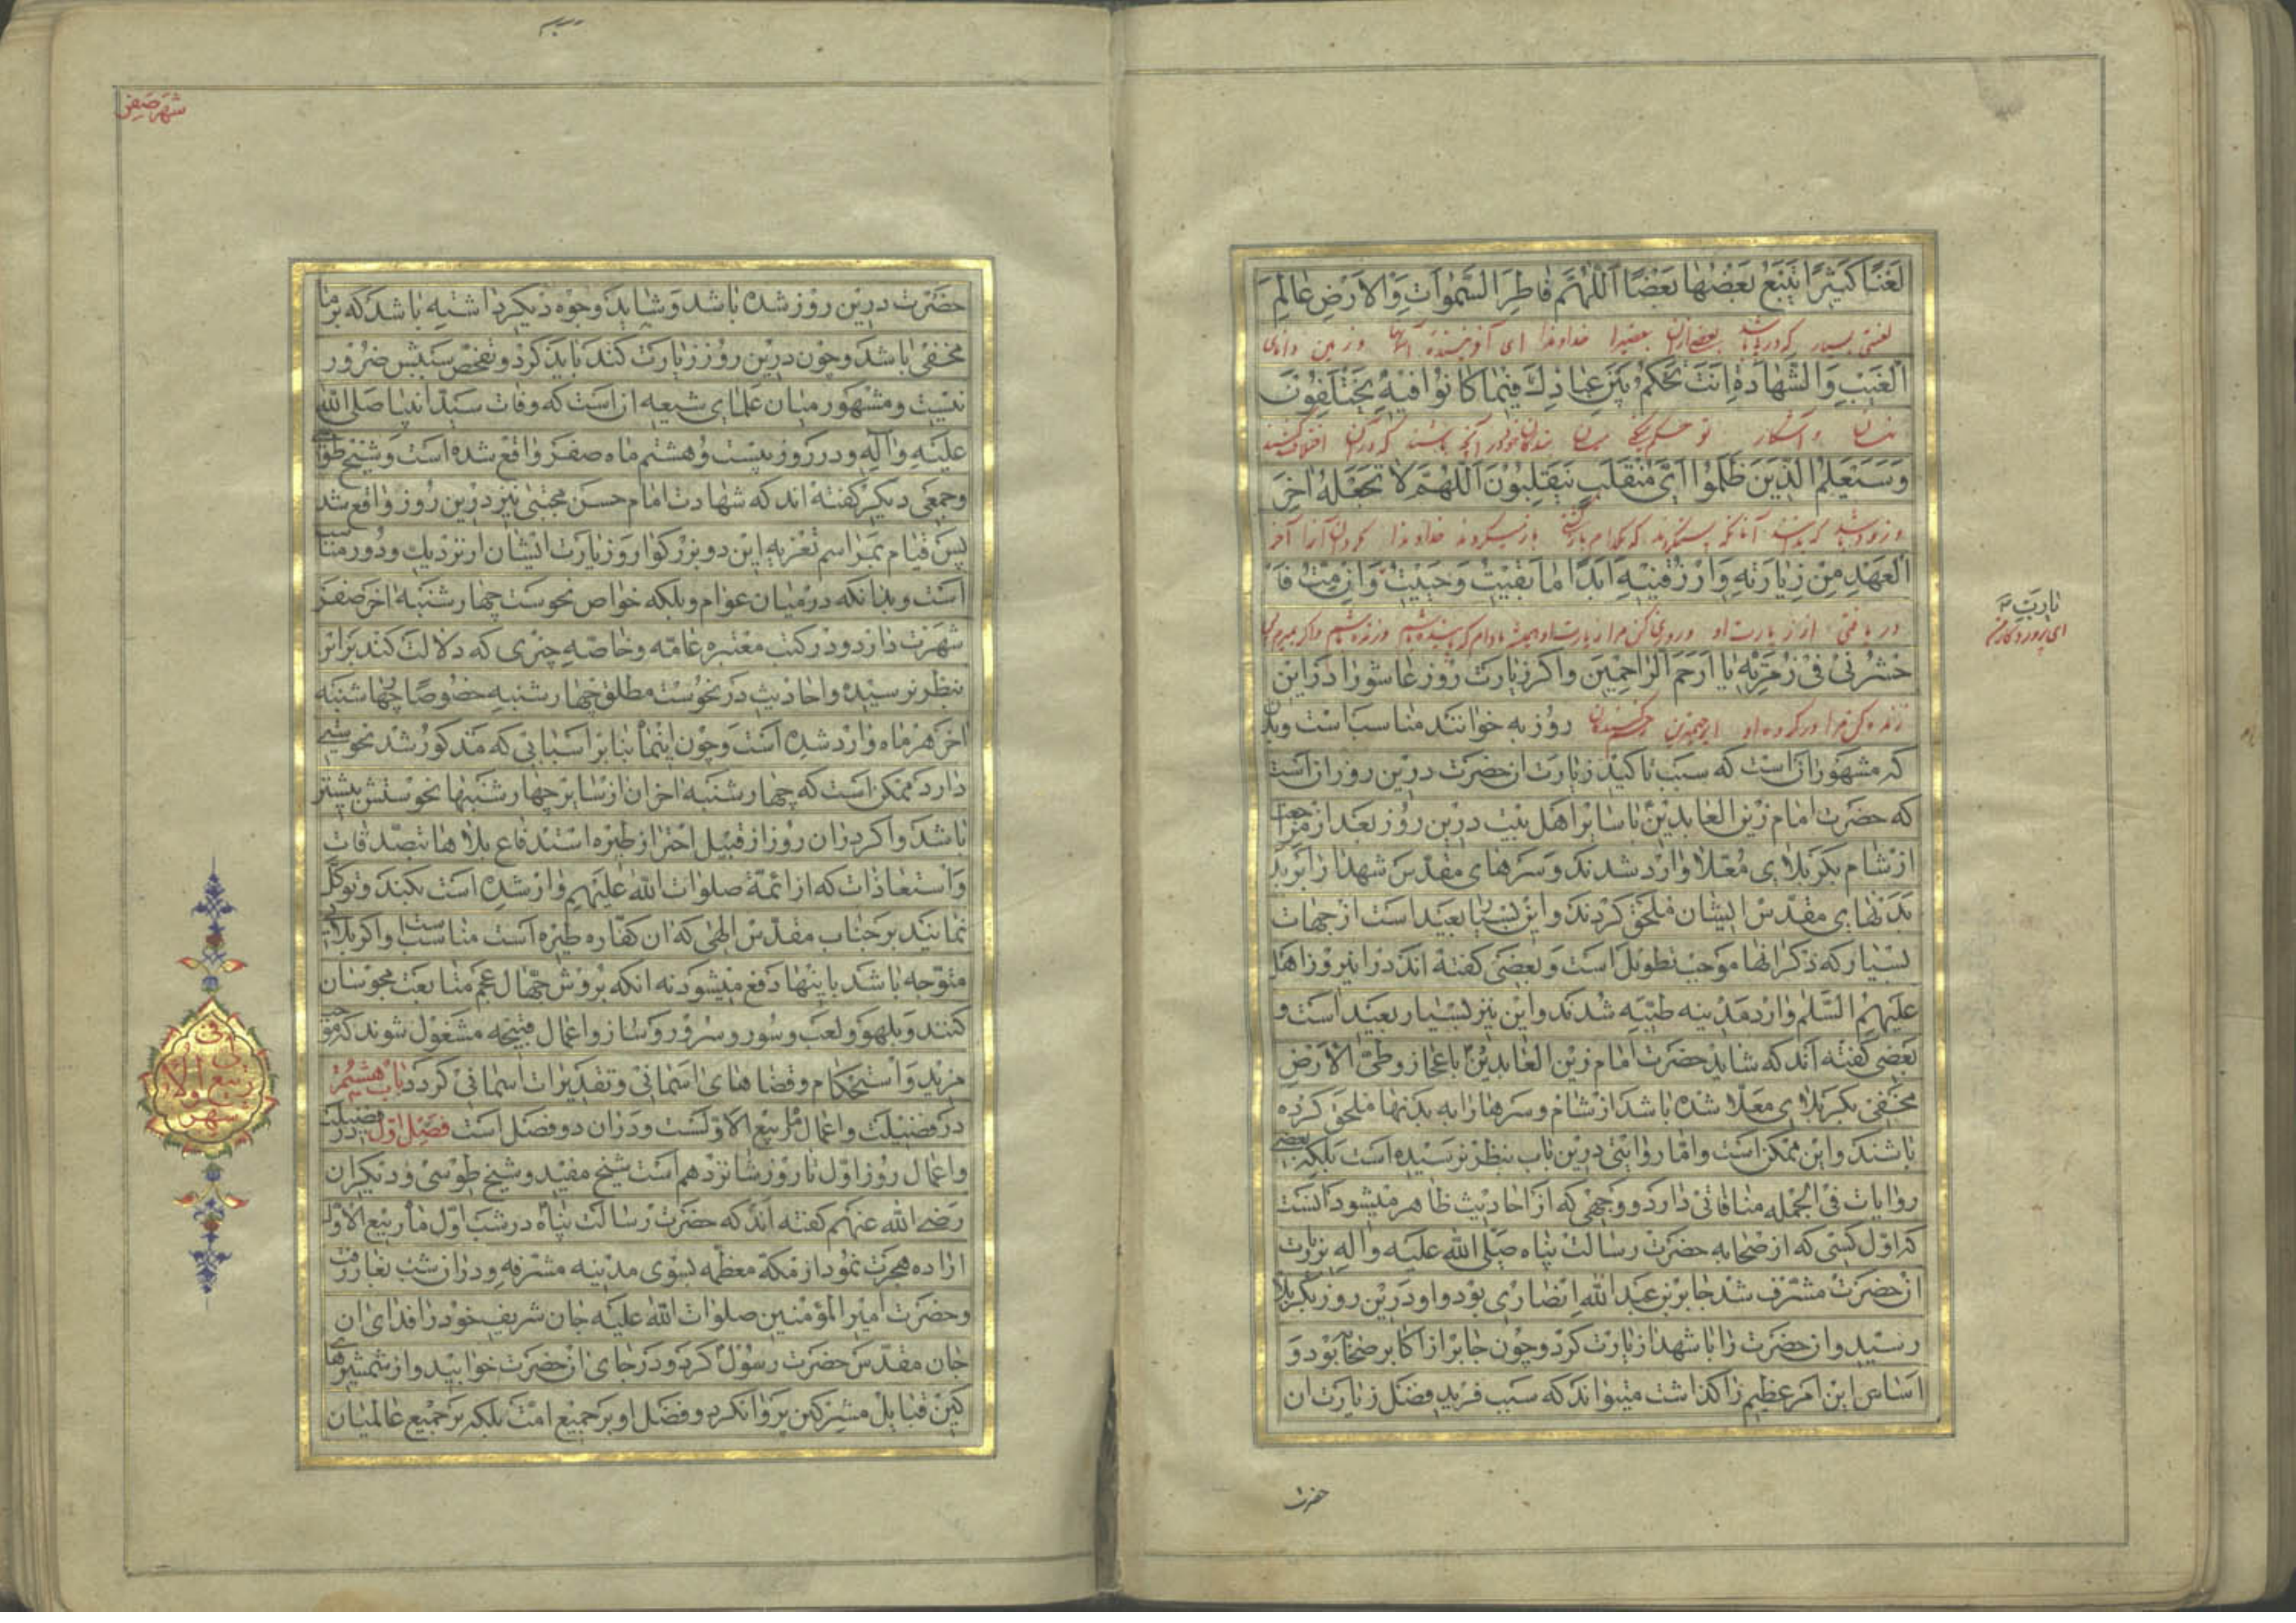 لَعْنًا كَثِيرًا يَتْبَعُ بَعْضُهَا بَعْضًا اَللّٰهُمَّ فَاطِرَ السَّمٰوَاتِ وَالْاَرْضِ عَالِمَ
لعنتی بسیار که در پی باشد بعضی ازان بعضیرا خداوندا ای آفریننده آسمانها و زمین و دانای
الْغَيْبِ وَالشَّهَادَةِ اَنْتَ تَحْكُمُ بَيْنَ عِبَادِكَ فِيمَا كَانُوا فِيهِ يَخْتَلِفُونَ
پنهان و آشکار تو حکم میکنی میان بندگان خود در آنچه باشند که در آن اختلاف کنند
وَسَيَعْلَمُ الَّذِينَ ظَلَمُوا اَيَّ مُنْقَلَبٍ يَنْقَلِبُونَ اَللّٰهُمَّ لَا تَجْعَلْهُ اٰخِرَ
و زود باشد که بدانند آنانکه ستم کردند که بکدام بازگشتن باز میگردند خداوندا مگردان آنرا آخر
الْعَهْدِ مِنْ زِيَارَتِهِ وَارْزُقْنِيهِ اَبَدًا مَا بَقِيتُ وَحَيِيتُ وَاِنْ مِتُّ فَا
دریافتن از زیارت او و روزی کن مرا زیارت او همیشه مادام که پاینده باشم و زنده باشم و اگر بمیرم پس
يَا رَبِّ
ای پروردگار من
حْشُرْنِي فِي زُمْرَتِهِ يَا اَرْحَمَ الرَّاحِمِينَ و اکر زیارت روز عاشورا در این
زنده کن مرا در گروه او ای رحیمترین رحم کنندگان روز به خوانند مناسب است و بدان
که مشهور ان است که سبب تاکید زیارت ان حضرت درین روز ان است
که حضرت امام زین العابدین با سایر اهل بیت درین روز بعد از مراجعت
از شام بکربلای معلا وارد شدند و سرهای مقدس شهدا را بر بد
بدنهای مقدس ایشان ملحق کردند و این بسیار بعید است از جهات
بسیار که ذکر انها موجب تطویل است و بعضی کفته اند در اینروز اهل
علیهم السلم وارد مدینه طیبه شدند و این نیز بسیار بعید است و
بعضی کفته اند که شاید حضرت امام زین العابدین باعجاز و طی الارض
مخفی بکربلای معلا شده باشد از شام و سرها را به بدنها ملحق کرده
باشند و این ممکن است و اما روایتی درین باب بنظر نرسیده است بلکه بعضی
روایات فی الجمله منافاتی دارد و وجهی که از احادیث ظاهر میشود انست
که اول کسی که از صحابه حضرت رسالت پناه صلی الله علیه واله بزیارت
ان حضرت مشرف شد جابر بن عبد الله انصاری بود و او درین روز بکربلا
رسید و ان حضرت را با شهدا زیارت کرد و چون جابر از اکابر صحابه بود و
اساس این امر عظیم را کذاشت میتواند که سبب فرید فضل زیارت ان
حضرت
شهر صفر
حضرت درین روز شده باشد و شاید وجوه دیکر داشته باشد که بر ما
مخفی باشد و چون درین روز زیارت کنند باید کرد و تفحص سببش ضرور
نیست و مشهور میان علمای شیعه ان است که وفات سید انبیا صلی الله
علیه واله ودر روز بیست و هشتم ماه صفر واقع شده است و شیخ طوسی
و جمعی دیکر کفته اند که شهادت امام حسن مجتبی نیز درین روز واقع شد
پس قیام بمراسم تعزیه این دو بزرکوار و زیارت ایشان از نزدیک و دور مناسب
است و بدانکه در میان عوام و بلکه خواص نحوست چهارشنبه اخر صفر
شهرت دارد و در کتب معتبره عامه و خاصه چیزی که دلالت کند بران
بنظر نرسیده و احادیث در نحوست مطلق چهارشنبه خصوصا چهارشنبه
اخر هر ماه وارد شده است و چون اینماه بنابر اسبابی که مذکور شد نحوستی
دارد ممکن است که چهارشنبه اخر ان از سایر چهارشنبها نحوستش بیشتر
باشد و اکر دران روز از قبیل احتراز طیره استدفاع بلاها بتصدقات
و استعاذات که از ائمه صلوات الله علیهم وارد شده است بکند و توکل
نمایند بر جناب مقدس الهی که ان کفاره طیره است مناسب است و اکر بلائی
متوجه باشد باینها دفع میشود نه انکه بروش جهال عجم متابعت مجوسان
کنند و بلهو و لعب و سور و سرور و ساز و اعمال قبیحه مشغول شوند که موجب
مزید و استحکام و قضاهای اسمانی و تقدیرات اسمانی کردد باب هشتم
در فضیلت و اعمال ماه ربیع الاولست و دران دو فصل است فصل اول در فضیلت
و اعمال روز اول تا روز شانزدهم است شیخ مفید و شیخ طوسی و دیکران
رضی الله عنهم کفته اند که حضرت رسالت پناه در شب اول ماه ربیع الاول
اراده هجرت نمود از مکه معظمه بسوی مدینه مشرفه و دران شب بغار رفت
و حضرت امیر المؤمنین صلوات الله علیه جان شریف خود را فدای ان
جان مقدس حضرت رسول کرد و در جای ان حضرت خوابید و از شمشیرهای
کین قبایل مشرکین پروا نکرد و فضل او بر جمیع امت بلکه بر جمیع عالمیان
فی
ربیع الاول
شهر